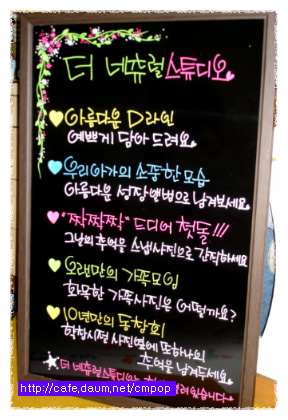 더 네츄럴스튜디오
아름다운 D라인
예쁘게 담아 드려요
우리아가의 소중한 모습
아름다운 성장앨범으로 남겨보세요
"짝짝짝" 드디어 첫돌!!!
그날의 추억을 스냅사진으로 간직하세요
오랜만의 가족모임
화목한 가족사진은 어떨까요?
10년만의 동창회
학창시절 사진옆에 또하나의
추억을 남겨두세요
더 네츄럴스튜디오는 열려 있습니다
http://cafe.daum.net/cmpop